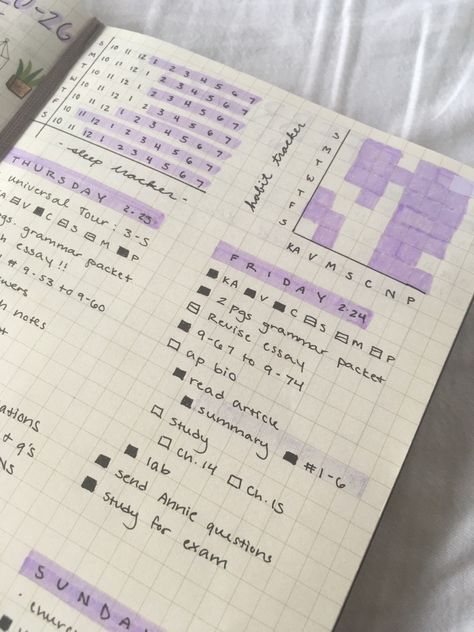 20-26
S 10 11 12 1 2 3 4 5 6 7
M 10 11 12 1 2 3 4 5 6 7
T 10 11 12 1 2 3 4 5 6 7
W 10 11 12 1 2 3 4 5 6 7
T 10 11 12 1 2 3 4 5 6 7
F 10 11 12 1 2 3 4 5 6 7
S 10 11 12 1 2 3 4 5 6 7
-sleep tracker-
habit tracker
S
M
T
W
T
F
S
KA V M S C N P
THURSDAY 2.23
universal Tour: 3-5
KA V C S M P
pgs. grammar packet
essay!!
# 9-53 to 9-60
notes
9's
FRIDAY 2.24
KA V C S M P
2 pgs grammar packet
Revise essay
9-67 to 9-74
ap bio
read article
summary #1-6
study
ch. 14 ch. 15
lab
send Annie questions
study for exam
SUNDA